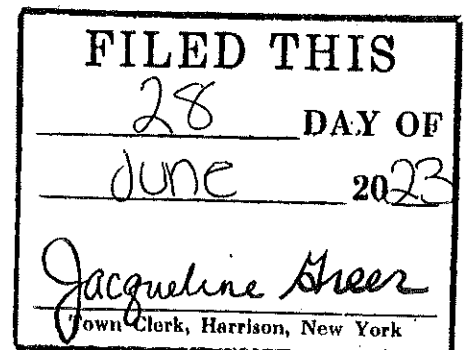 FILED THIS
28 DAY OF
June 2023
Jacqueline Greer
Town Clerk, Harrison, New York